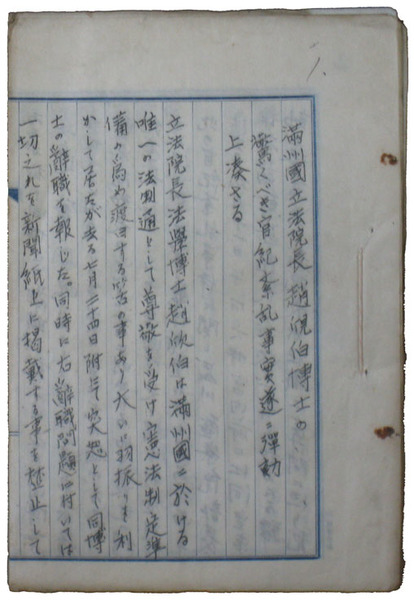 1.
滿州國立法院長 趙欣伯博士の
驚くべき官紀紊乱事実遂ニ弾劾
上奏さる
立法院長法學博士趙欣伯は滿州國ニ於ける
唯一の法制通として尊敬を受け憲法制定準
備の為め渡日する筈の事あり大いに羽振りを利
かして居たが去る七月二十四日附にて突忽として同博
士の辭職を報じた。同時に右辭職問題に付いては
一切之れを新聞紙上に掲載する事を禁止して